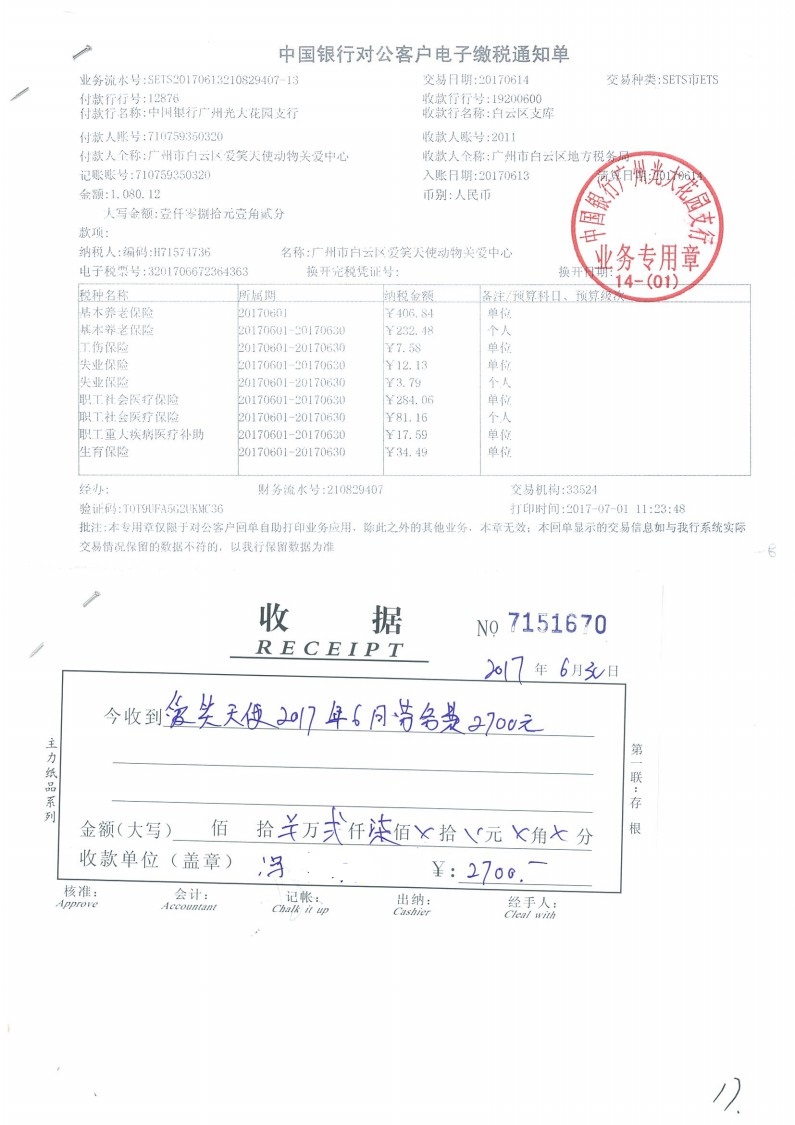 中国银行对公客户电子缴税通知单
业务流水号:SETS20170613210829407-13 交易日期:20170614 交易种类:SETS市ETS
付款行行号:12876 收款行行号:19200600
付款行名称:中国银行广州光大花园支行 收款行名称:白云区支库
付款人账号:710759350320 收款人账号:2011
付款人全称:广州市白云区爱笑天使动物关爱中心 收款人全称:广州市白云区地方税务局
记账账号:710759350320 入账日期:20170613 清算日期:20170614
金额:1,080.12 币别:人民币
大写金额:壹仟零捌拾元壹角贰分
款项:
纳税人:编码:H71574736 名称:广州市白云区爱笑天使动物关爱中心
电子税票号:3201706672364363 换开完税凭证号: 换开日期:
中国银行广州光大花园支行
业务专用章
14-(01)
税种名称 所属期 纳税金额 备注/预算科目、预算级次
基本养老保险 20170601 ￥406.84 单位
基本养老保险 20170601-20170630 ￥232.48 个人
工伤保险 20170601-20170630 ￥7.58 单位
失业保险 20170601-20170630 ￥12.13 单位
失业保险 20170601-20170630 ￥3.79 个人
职工社会医疗保险 20170601-20170630 ￥284.06 单位
职工社会医疗保险 20170601-20170630 ￥81.16 个人
职工重大疾病医疗补助 20170601-20170630 ￥17.59 单位
生育保险 20170601-20170630 ￥34.49 单位
经办: 财务流水号:210829407 交易机构:33524
验证码:TOT9UFA5G2UKMC36 打印时间:2017-07-01 11:23:48
批注:本专用章仅限于对公客户回单自助打印业务应用，除此之外的其他业务，本章无效；本回单显示的交易信息如与我行系统实际
交易情况保留的数据不符的，以我行保留数据为准
收 据
RECEIPT
No 7151670
2017 年 6月30日
今收到 爱笑天使2017年6月劳务费2700元
金额(大写) 佰 拾 万 贰仟柒佰 拾 元 角 分
收款单位（盖章） 冯 ￥: 2700.一
核准: 会计: 记帐: 出纳: 经手人:
Approve Accountant Chalk it up Cashier Cleal with
主力纸品系列
第一联:存根
17.